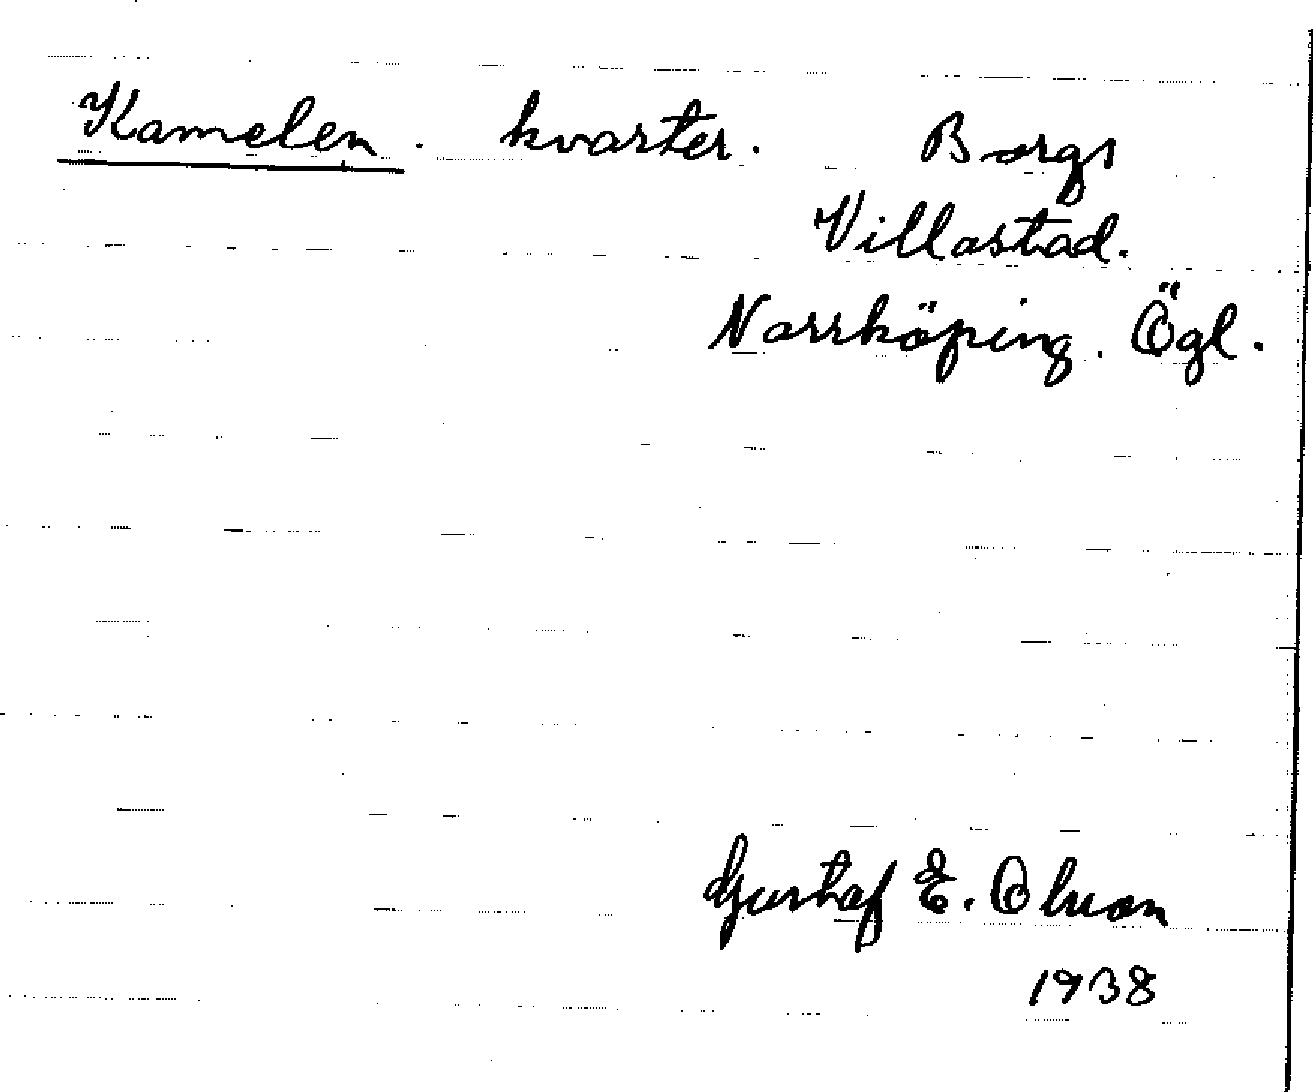 Kamelen. kvarter. Borgs
Villastad.
Norrköping. Ögl.
Gustaf E. Olsson
1938